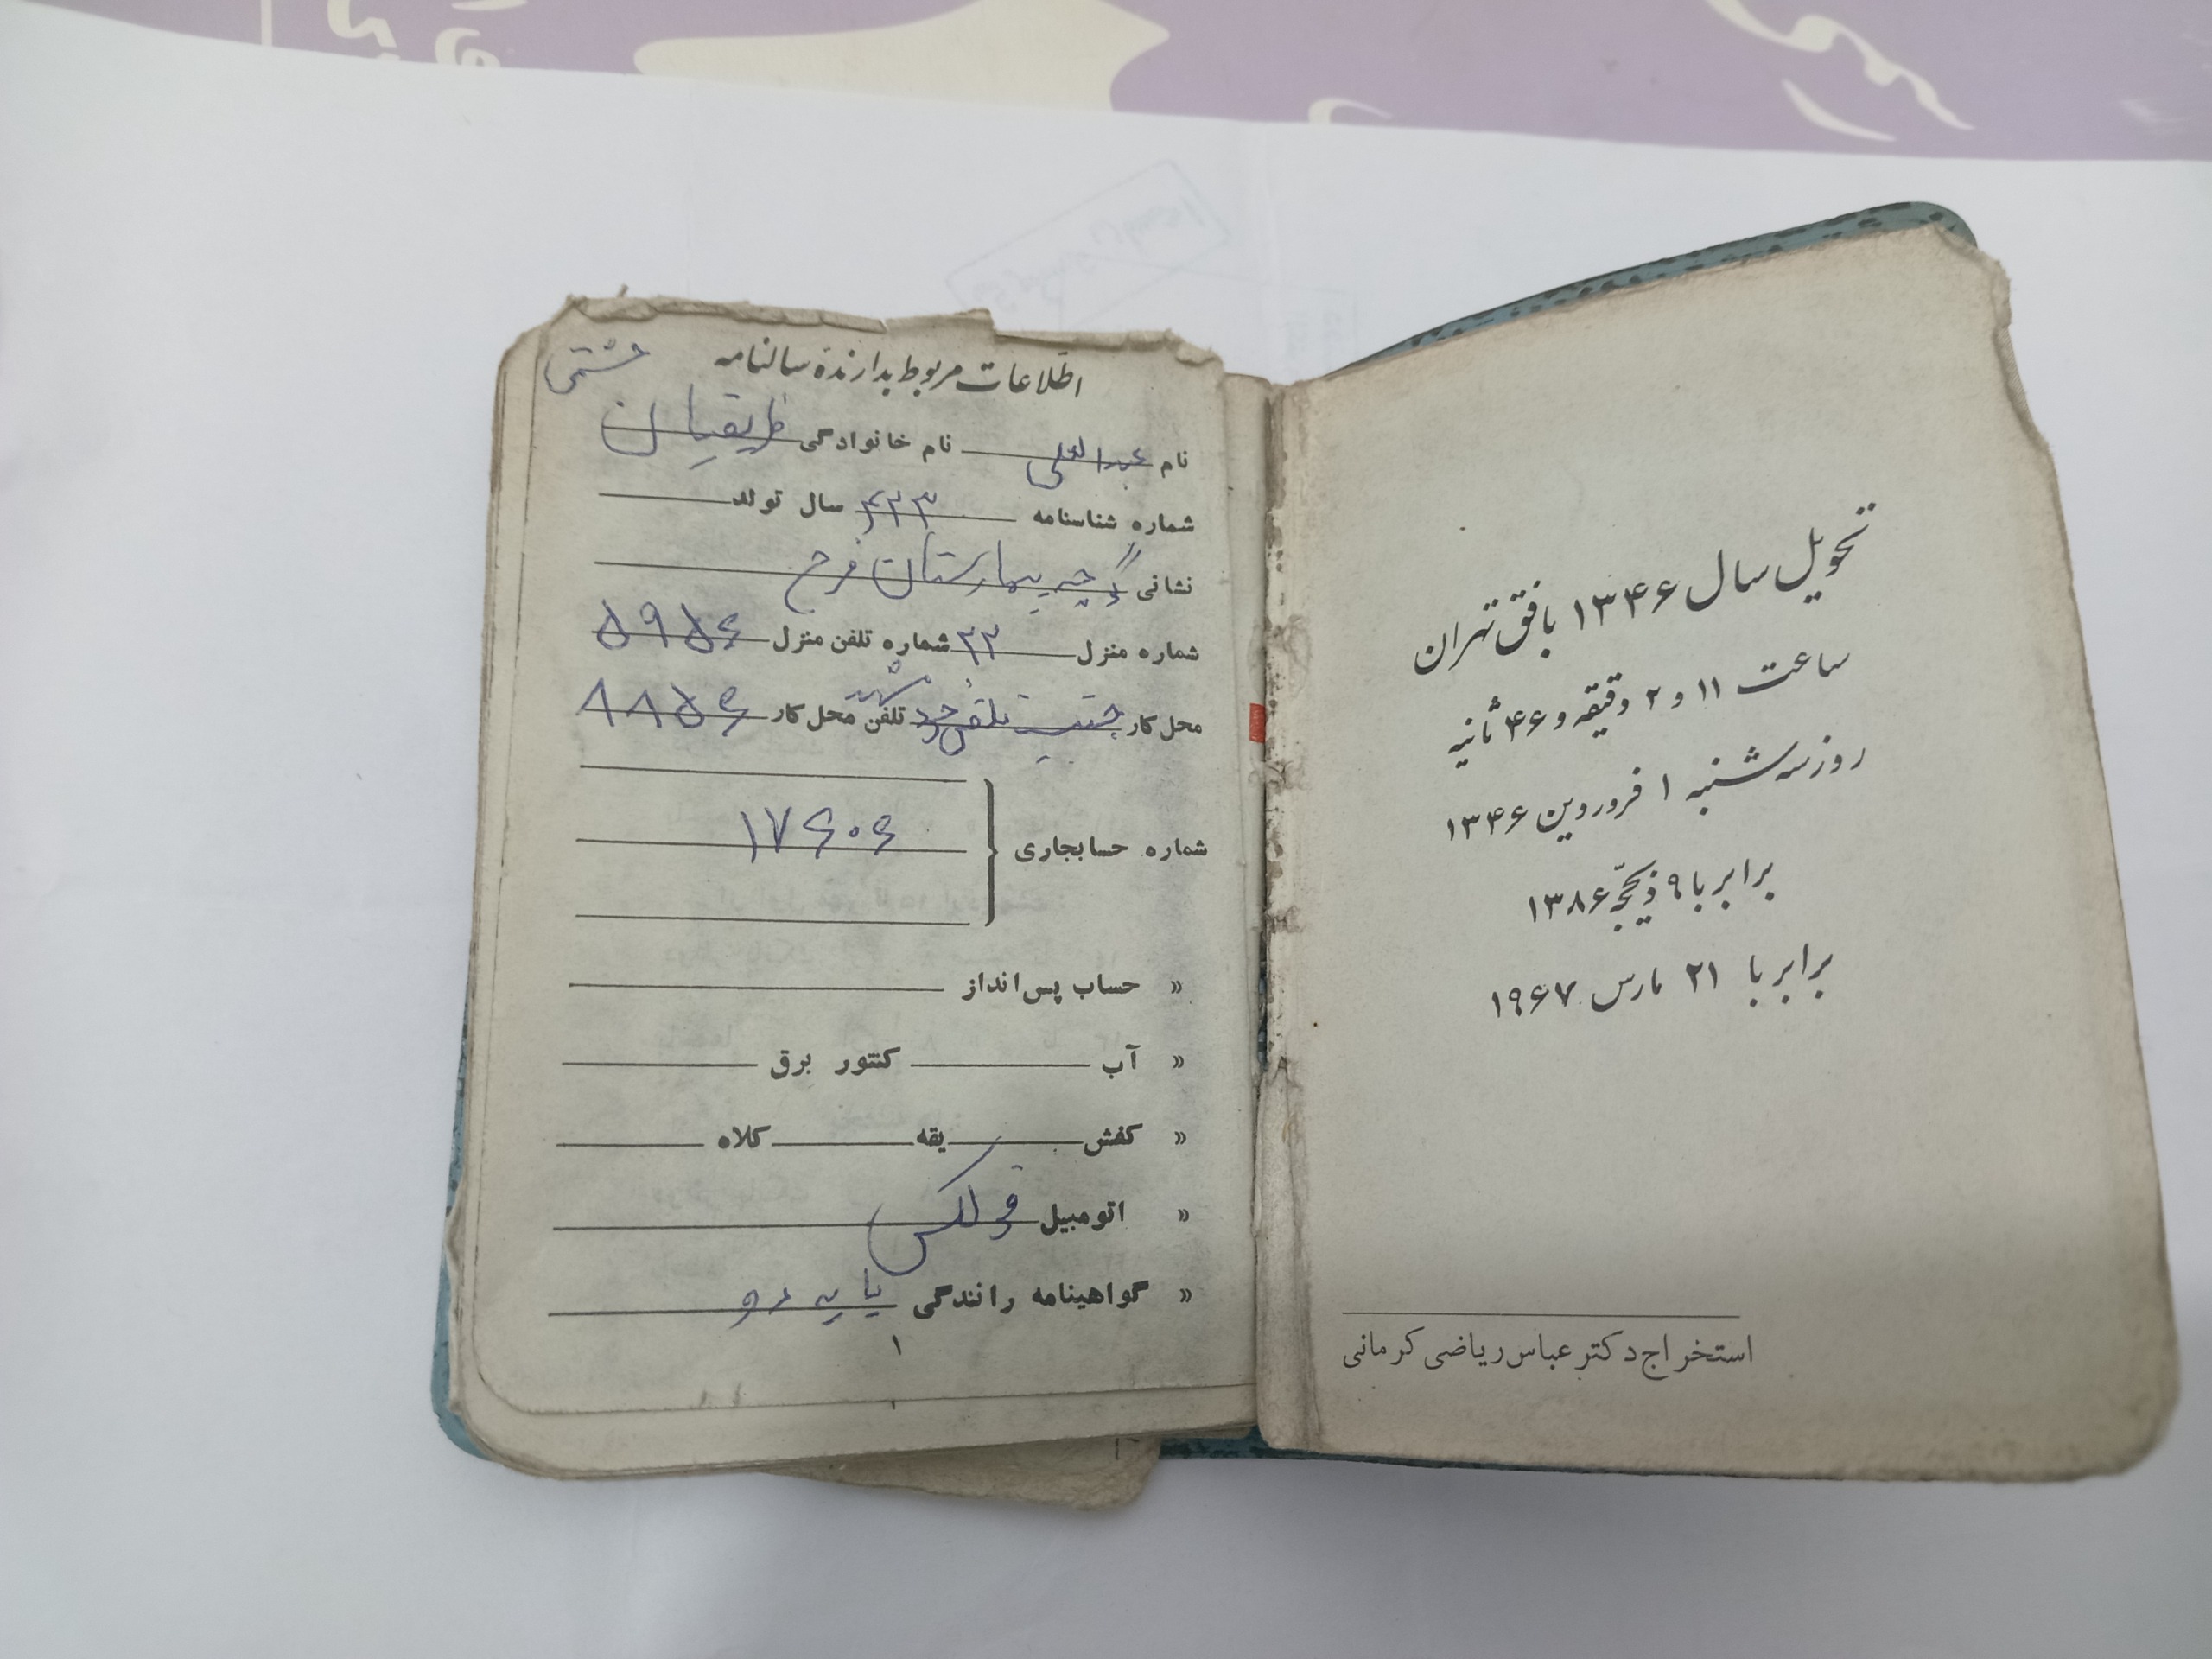 تحویل سال ۱۳۴۶ بافق تهران
ساعت ۱۱ و ۲ دقیقه و ۴۶ ثانیه
روز سه شنبه ۱ فروردین ۱۳۴۶
برابر با ۹ ذیحجّه ۱۳۸۶
برابر با ۲۱ مارس ۱۹۶۷
استخراج دکتر عباس ریاضی کرمانی
اطلاعات مربوط بدارندهٔ سالنامه
نام عبدالعلی نام خانوادگی ظریفیان
شماره شناسنامه ۴۳۳ سال تولد
نشانی کوچه بیمارستان فرخ
شماره منزل ۲۳ شماره تلفن منزل ۵۹۵۶
محل کار جنب تلفن تلفن محل کار ۸۸۵۶
شماره حسابجاری ۱۷۶۰۶
» حساب پس‌انداز
» آب کنتور برق
» کفش یقه کلاه
» اتومبیل فولکس
» گواهینامه رانندگی پایه دو
۱